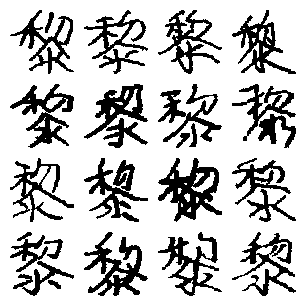 黎黎黎黎
黎黎黎黎
黎黎黎黎
黎黎黎黎